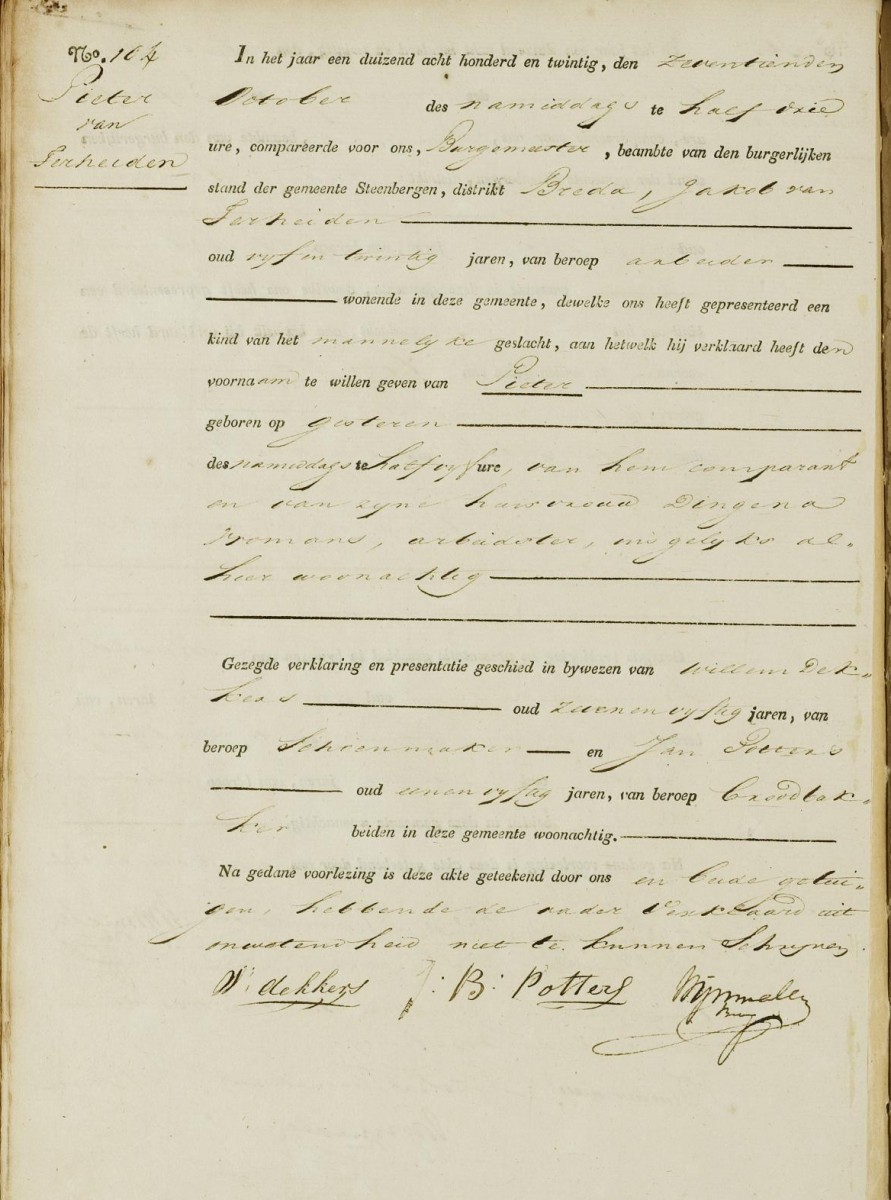 No. 104
Pieter
van
Terheiden
In het jaar een duizend acht honderd en twintig, den zeventienden
October des namiddags te half drie
ure, compareerde voor ons, Burgemeester, beambte van den burgerlijken
stand der gemeente Steenbergen, distrikt Breda, Jakob van
Terheiden
oud vyf en twintig jaren, van beroep arbeider
wonende in deze gemeente, dewelke ons heeft gepresenteerd een
kind van het mannelyke geslacht, aan hetwelk hij verklaard heeft den
voornaam te willen geven van Pieter
geboren op gisteren
des namiddags te half vyf ure, van hem comparant
en van zyne huisvrouw Dingena
Vromans, arbeidster, insgelyks al-
hier woonachtig
Gezegde verklaring en presentatie geschied in bywezen van Willem Dek-
kers oud zeven en vyftig jaren, van
beroep Schoenmaker en Jan Potters
oud een en vyftig jaren, van beroep broodbak-
ker beiden in deze gemeente woonachtig.
Na gedane voorlezing is deze akte geteekend door ons en beide getui-
gen, hebbende de vader verklaard uit
onwetendheid niet te kunnen Schryven.
W: dekkers J: B: Potters